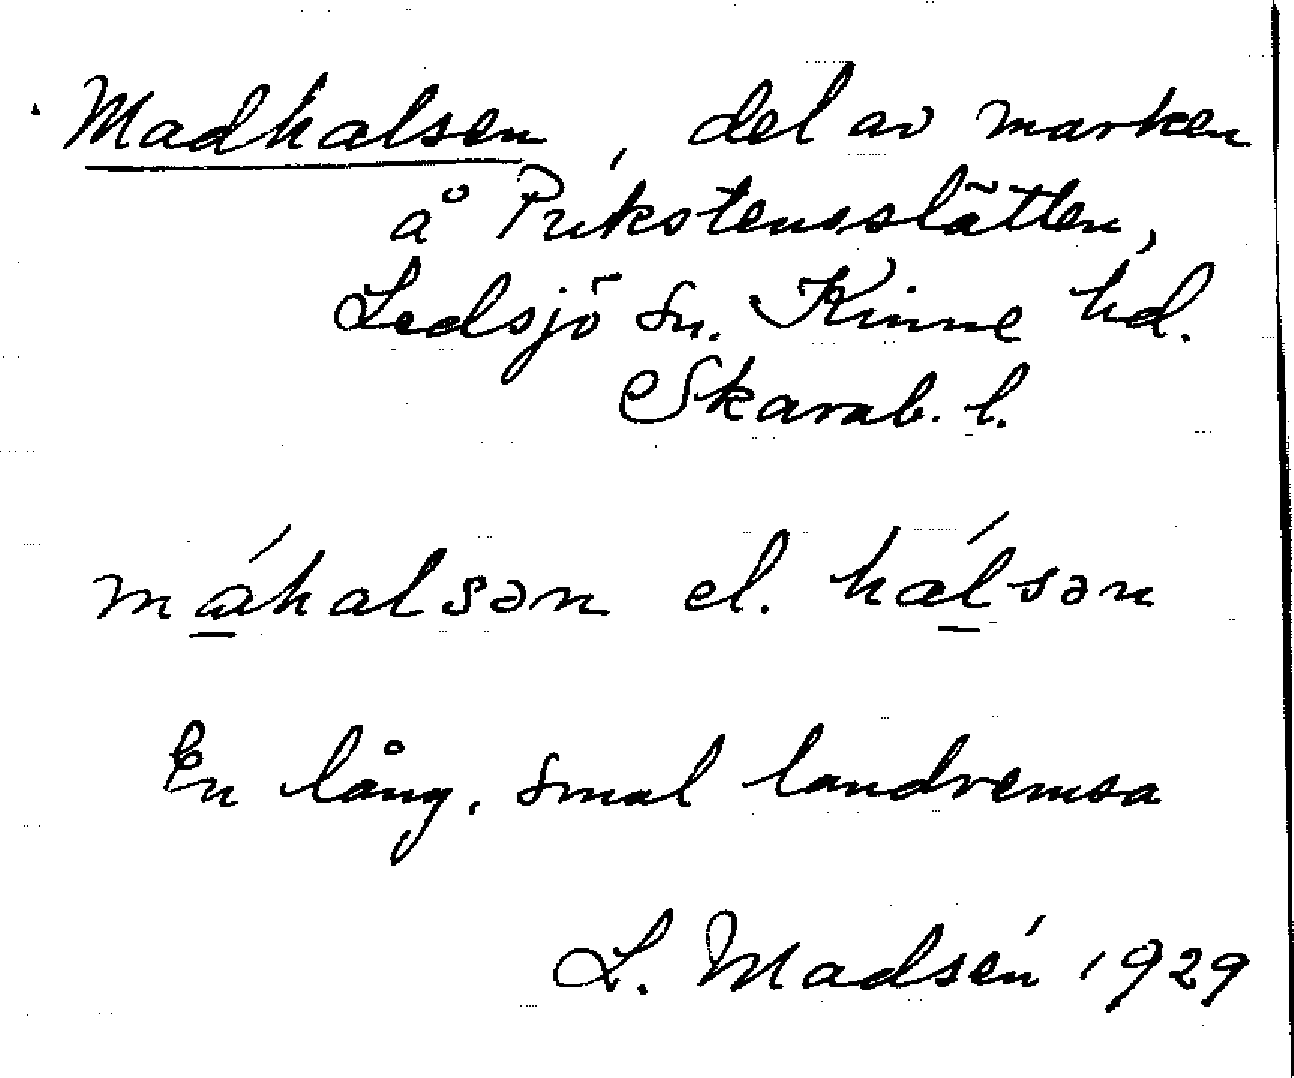 Madhalsen, del av marken
å Prikstensslätten,
Ledsjö sn. Kinne hd.
Skarab. l.
máhalsən el. hálsən
En lång, smal landremsa
L. Madsén 1929